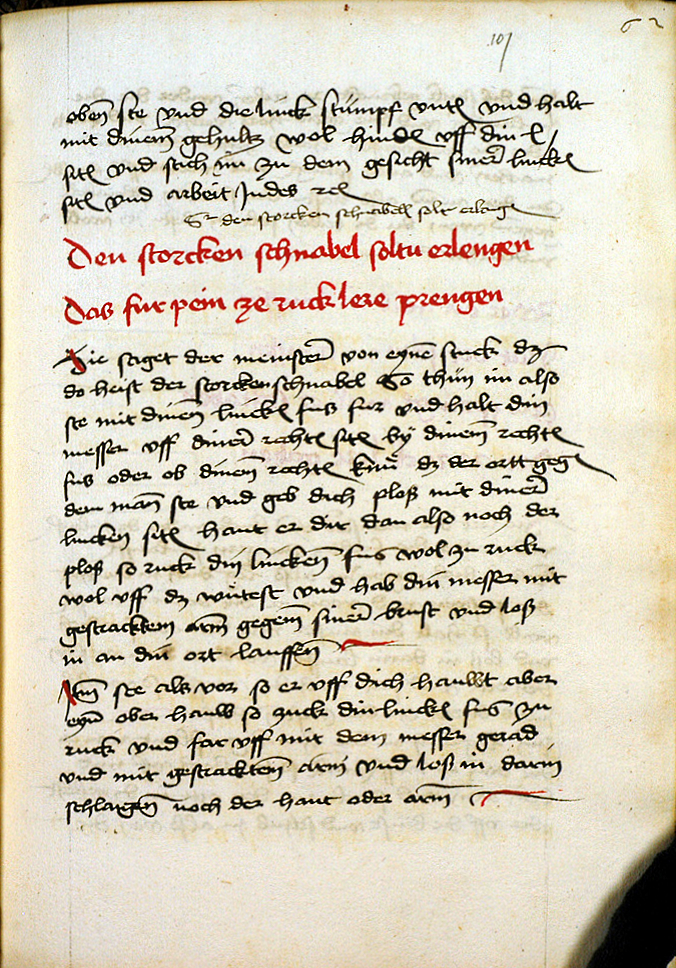 101
62
oben ste vnd die linck stumpf vnten vnd halt
mit dinem gehultz wol hinden vff din l
siten vnd stich im zu dem gesicht siner lincken
siten vnd arbeit Indes
den storcken schnabell solt erlengen
Den storcken schnabel soltu erlengen
Das fur pein ze ruck lere prengen
Hie saget der meinster von eyne stuck dz
do heist der storckenschnabel So thun im also
ste mit dinem lincken fus fur vnd halt din
messer vff diner rechten siten by dinem rechten
fus oder ob dinem rechten knu dz der ortt gegen
dem man ste vnd geb dich ploß mit diner
lincken siten haut er dir dan also noch der
ploß so ruck din lincken fus wol zu ruck
wol vff dz wutest vnd hab din messer mit
gestracktem arm gegem siner brust vnd loß
in an din ort lauffen
Item ste als vor so er vff dich hauwt aber
eyn ober hauw so zuck din lincken fus zu
ruck vnd far vff mit dem messer gerad
vnd mit gestracktem arm vnd loß in darin
schlagen noch der haut oder arm